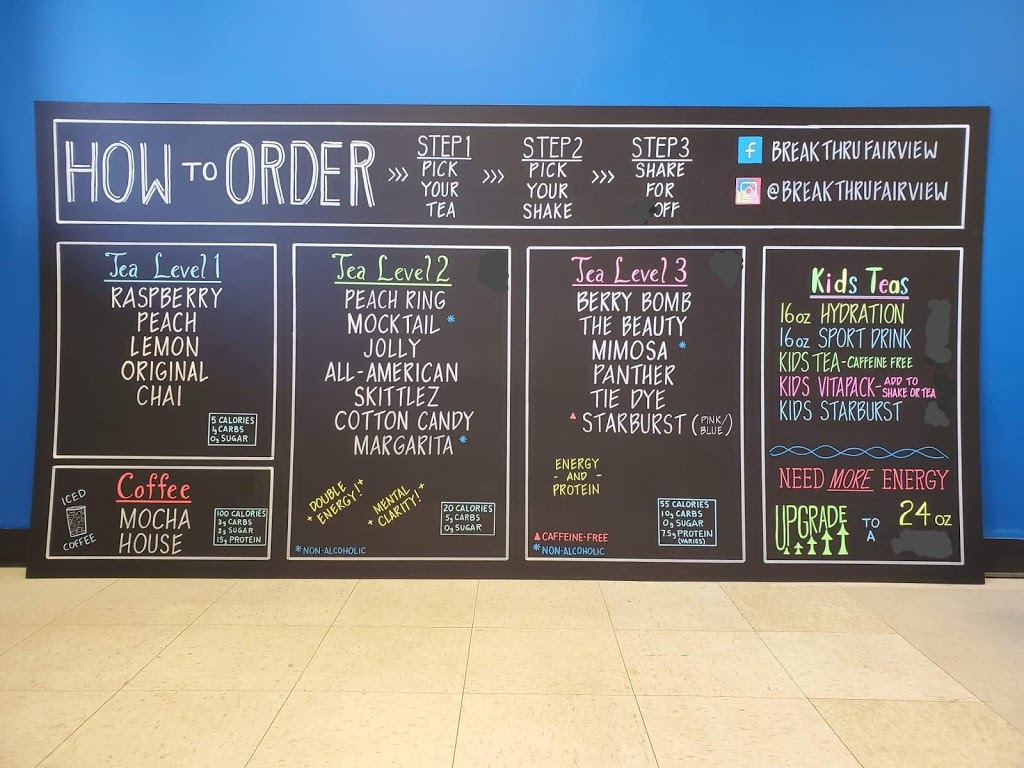 HOW TO ORDER
>>>
STEP 1
PICK
YOUR
TEA
>>>
STEP 2
PICK
YOUR
SHAKE
>>>
STEP 3
SHARE
FOR
OFF
f BREAKTHRUFAIRVIEW
@BREAKTHRUFAIRVIEW
Tea Level 1
RASPBERRY
PEACH
LEMON
ORIGINAL
CHAI
5 CALORIES
4g CARBS
0g SUGAR
Coffee
MOCHA
HOUSE
ICED
COFFEE
100 CALORIES
3g CARBS
2g SUGAR
15g PROTEIN
Tea Level 2
PEACH RING
MOCKTAIL *
JOLLY
ALL-AMERICAN
SKITTLEZ
COTTON CANDY
MARGARITA *
+ DOUBLE
ENERGY! +
+ MENTAL
CLARITY! +
20 CALORIES
5g CARBS
0g SUGAR
*NON-ALCOHOLIC
Tea Level 3
BERRY BOMB
THE BEAUTY
MIMOSA *
PANTHER
TIE DYE
▲ STARBURST (PINK/
BLUE)
ENERGY
- AND -
PROTEIN
55 CALORIES
10g CARBS
0g SUGAR
7.5g PROTEIN
(VARIES)
▲CAFFEINE-FREE
*NON-ALCOHOLIC
Kids Teas
16oz HYDRATION
16oz SPORT DRINK
KIDS TEA-CAFFEINE FREE
KIDS VITAPACK-ADD TO
SHAKE OR TEA
KIDS STARBURST
NEED MORE ENERGY
UPGRADE
TO
A
24 oz